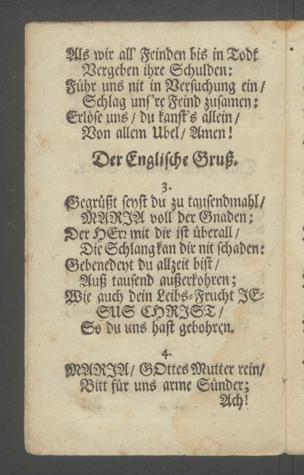 Als wir all' Feinden bis in Todt
Vergeben ihre Schulden:
Führ uns nit in Versuchung ein/
Schlag uns're Feind zusamen:
Erlöse uns/ du kanst's allein/
Von allem Ubel/ Amen!
Der Englische Gruß.
3.
Gegrüßt seyst du zu tausendmahl/
MARIA voll der Gnaden:
Der HErr mit dir ist überall/
Die Schlang kan dir nit schaden:
Gebenedeyt du allzeit bist/
Auß tausend außerkohren;
Wie auch dein Leibs-Frucht JE-
SUS CHRIST/
So du uns hast gebohren.
4.
MARIA/ GOttes Mutter rein/
Bitt für uns arme Sünder;
Ach!